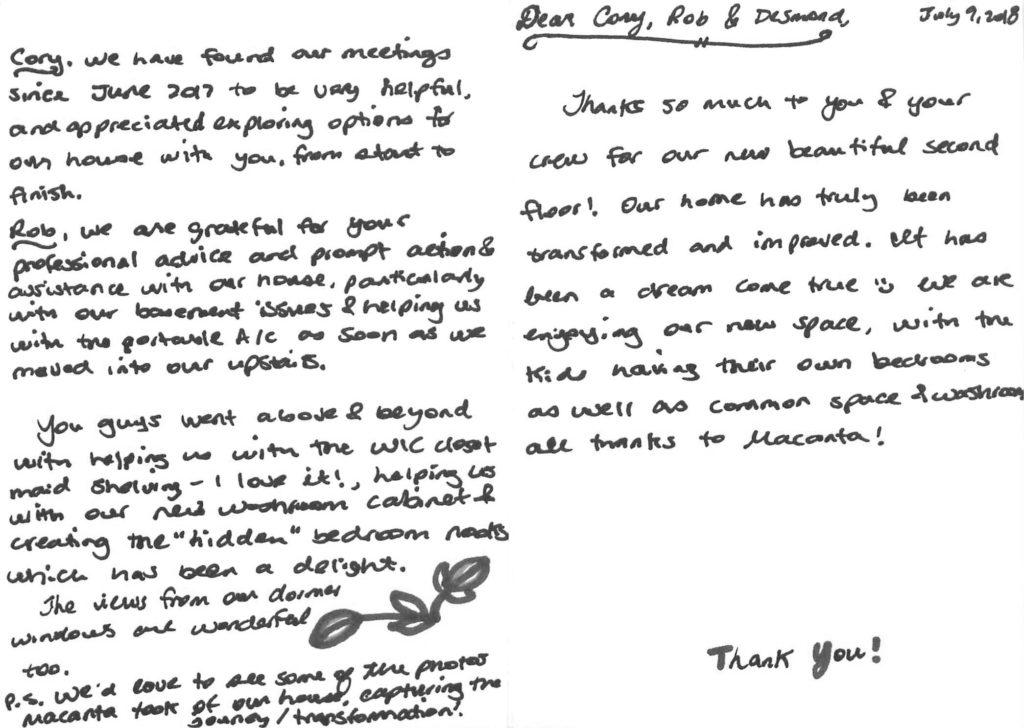 Dear Cory, Rob & Desmond,
July 9, 2018
Thanks so much to you & your
crew for our new beautiful second
floor! Our home has truly been
transformed and improved. It has
been a dream come true We are
enjoying our new space, with the
kids having their own bedrooms
as well as common space & washroom
all thanks to Macanta!
Thank You!
Cory, we have found our meetings
since June 2017 to be very helpful,
and appreciated exploring options for
our house with you, from start to
finish.
Rob, we are grateful for your
professional advice and prompt action &
assistance with our house, particularly
with our basement issues & helping us
with the portable A/C as soon as we
moved into our upstairs.
You guys went above & beyond
with helping us with the WIC closet
maid shelving - I love it!, helping us
with our new washroom cabinet &
creating the "hidden" bedroom nooks
which has been a delight.
The views from our dormer
windows are wonderful
too.
P.S. We'd love to see some of the photos
Macanta took of our house, capturing the
journey/transformation!